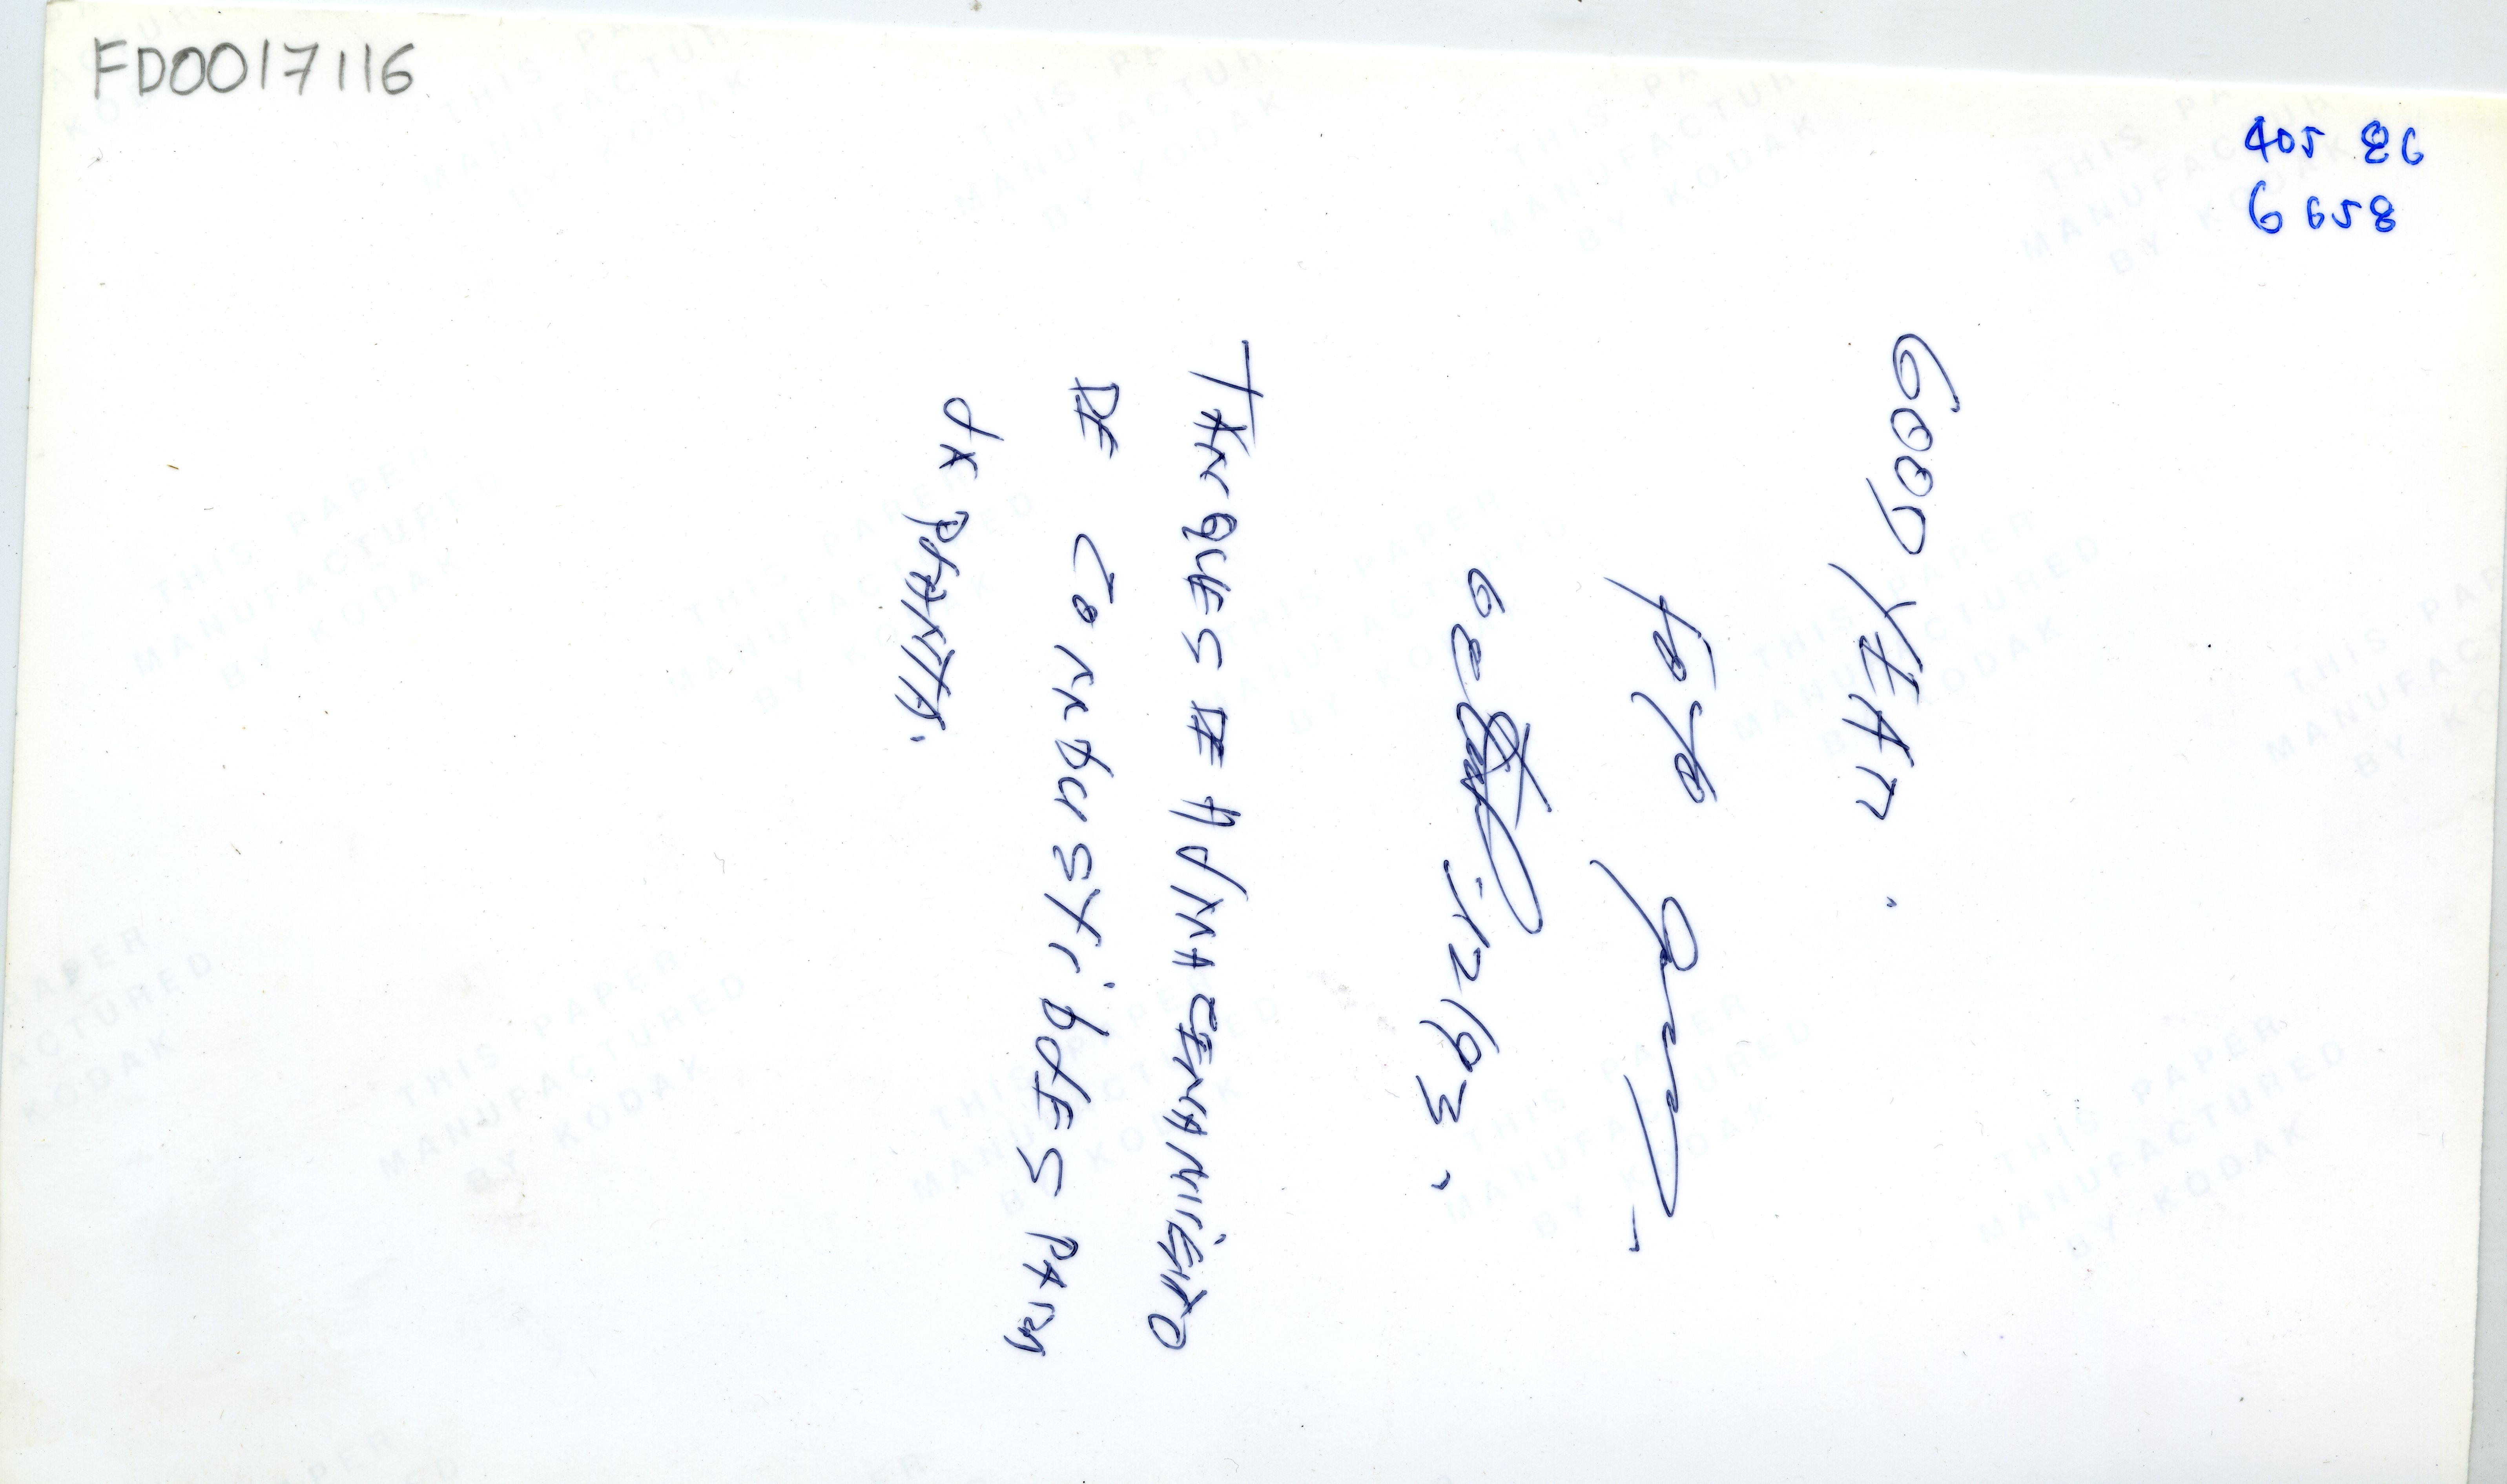 FD0017116
405 86
6 658
GOOD YEAR.
TANQUES DE ALMACENAMIENTO
DE COMBUSTIBLES PARA
LA PLANTA.
THIS PAPER
MANUFACTURED
BY KODAK